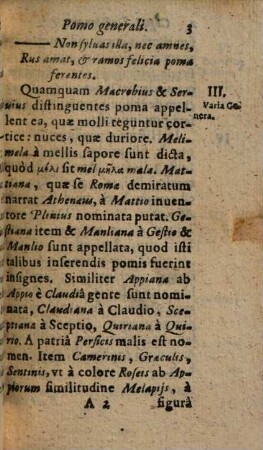 Pomo generali. 3
—— Non sylvas illa, nec amnes,
Rus amat, & ramos felicia poma
ferentes.
Quamquam Macrobius & Ser-
uius distinguentes poma appel-
lent ea, quæ molli teguntur cor-
tice: nuces, quæ duriore. Meli-
mela à mellis sapore sunt dicta,
quòd μέλι sit mel μῆλα mala. Mat-
tiana, quæ se Romæ demiratum
narrat Athenæus, à Mattio inuen-
tore Plinius nominata putat. Ge-
stiana item & Manliana à Gestio &
Manlio sunt appellata, quod isti
talibus inserendis pomis fuerint
insignes. Similiter Appiana ab
Appio è Claudiâ gente sunt nomi-
nata, Claudiana à Claudio, Sce-
ptiana à Sceptio, Quiriana à Qui-
rio. A patriâ Persicis malis est no-
men. Item Camerinis, Græculis,
Sentinis, vt à colore Roseis ab Ap-
piorum similitudine Melapijs, à
A 2 figurâ
III.
Varia Ge-
nera.